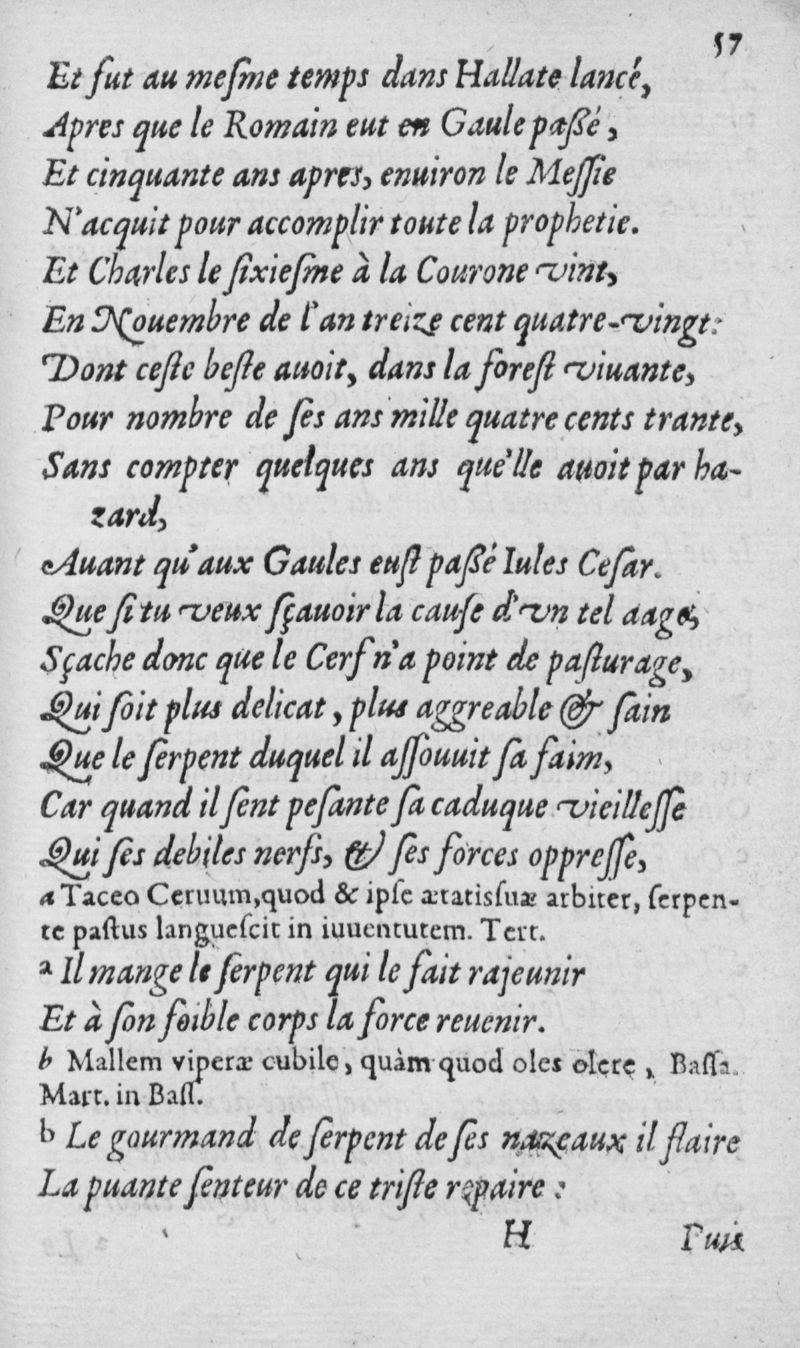 57
Et fut au meſme temps dans Hallate lancé,
Apres que le Romain eut en Gaule paßé,
Et cinquante ans apres, enuiron le Meſſie
N'acquit pour accomplir toute la prophetie.
Et Charles le ſixieſme à la Courone vint,
En Nouembre de l'an treize cent quatre-vingt:
Dont ceſte beſte auoit, dans la foreſt viuante,
Pour nombre de ſes ans mille quatre cents trante,
Sans compter quelques ans que'lle auoit par ha-
zard,
Auant qu'aux Gaules euſt paßé Iules Ceſar.
Que ſi tu veux ſçauoir la cauſe d'vn tel aage,
Sçache donc que le Cerf n'a point de paſturage,
Qui ſoit plus delicat, plus aggreable & ſain
Que le ſerpent duquel il aſſouuit ſa faim,
Car quand il ſent peſante ſa caduque vieilleſſe
Qui ſes debiles nerfs, & ſes forces oppreſſe,
a Taceo Ceruum, quod & ipſe ætatis ſuæ arbiter, ſerpen-
te paſtus langueſcit in iuuentutem. Tert.
a Il mange le ſerpent qui le fait rajeunir
Et à ſon foible corps la force reuenir.
b Mallem viperæ cubile, quàm quod oles olere, Baſſa.
Mart. in Baſſ.
b Le gourmand de ſerpent de ſes nazeaux il flaire
La puante ſenteur de ce triſte repaire:
H
Puis